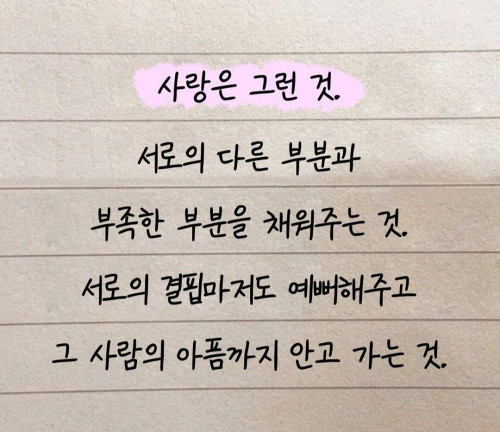 사랑은 그런 것.
서로의 다른 부분과
부족한 부분을 채워주는 것.
서로의 결핍마저도 예뻐해주고
그 사람의 아픔까지 안고 가는 것.